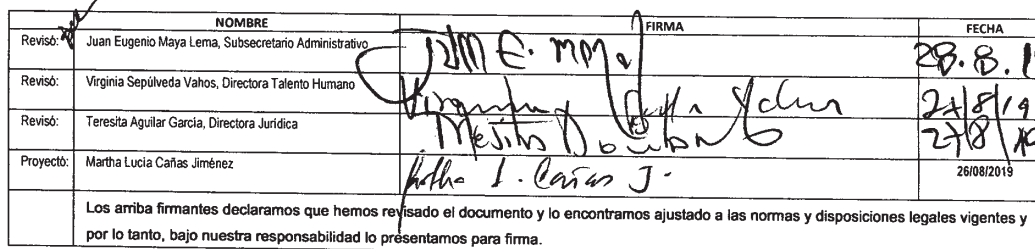 NOMBRE FIRMA FECHA
Revisó: Juan Eugenio Maya Lema, Subsecretario Administrativo Juan E. Maya 28.8.1
Revisó: Virginia Sepúlveda Vahos, Directora Talento Humano Virginia 27/8/19
Revisó: Teresita Aguilar García, Directora Jurídica 27/8/19
Proyectó: Martha Lucía Cañas Jiménez Martha L. Cañas J. 26/08/2019
Los arriba firmantes declaramos que hemos revisado el documento y lo encontramos ajustado a las normas y disposiciones legales vigentes y
por lo tanto, bajo nuestra responsabilidad lo presentamos para firma.